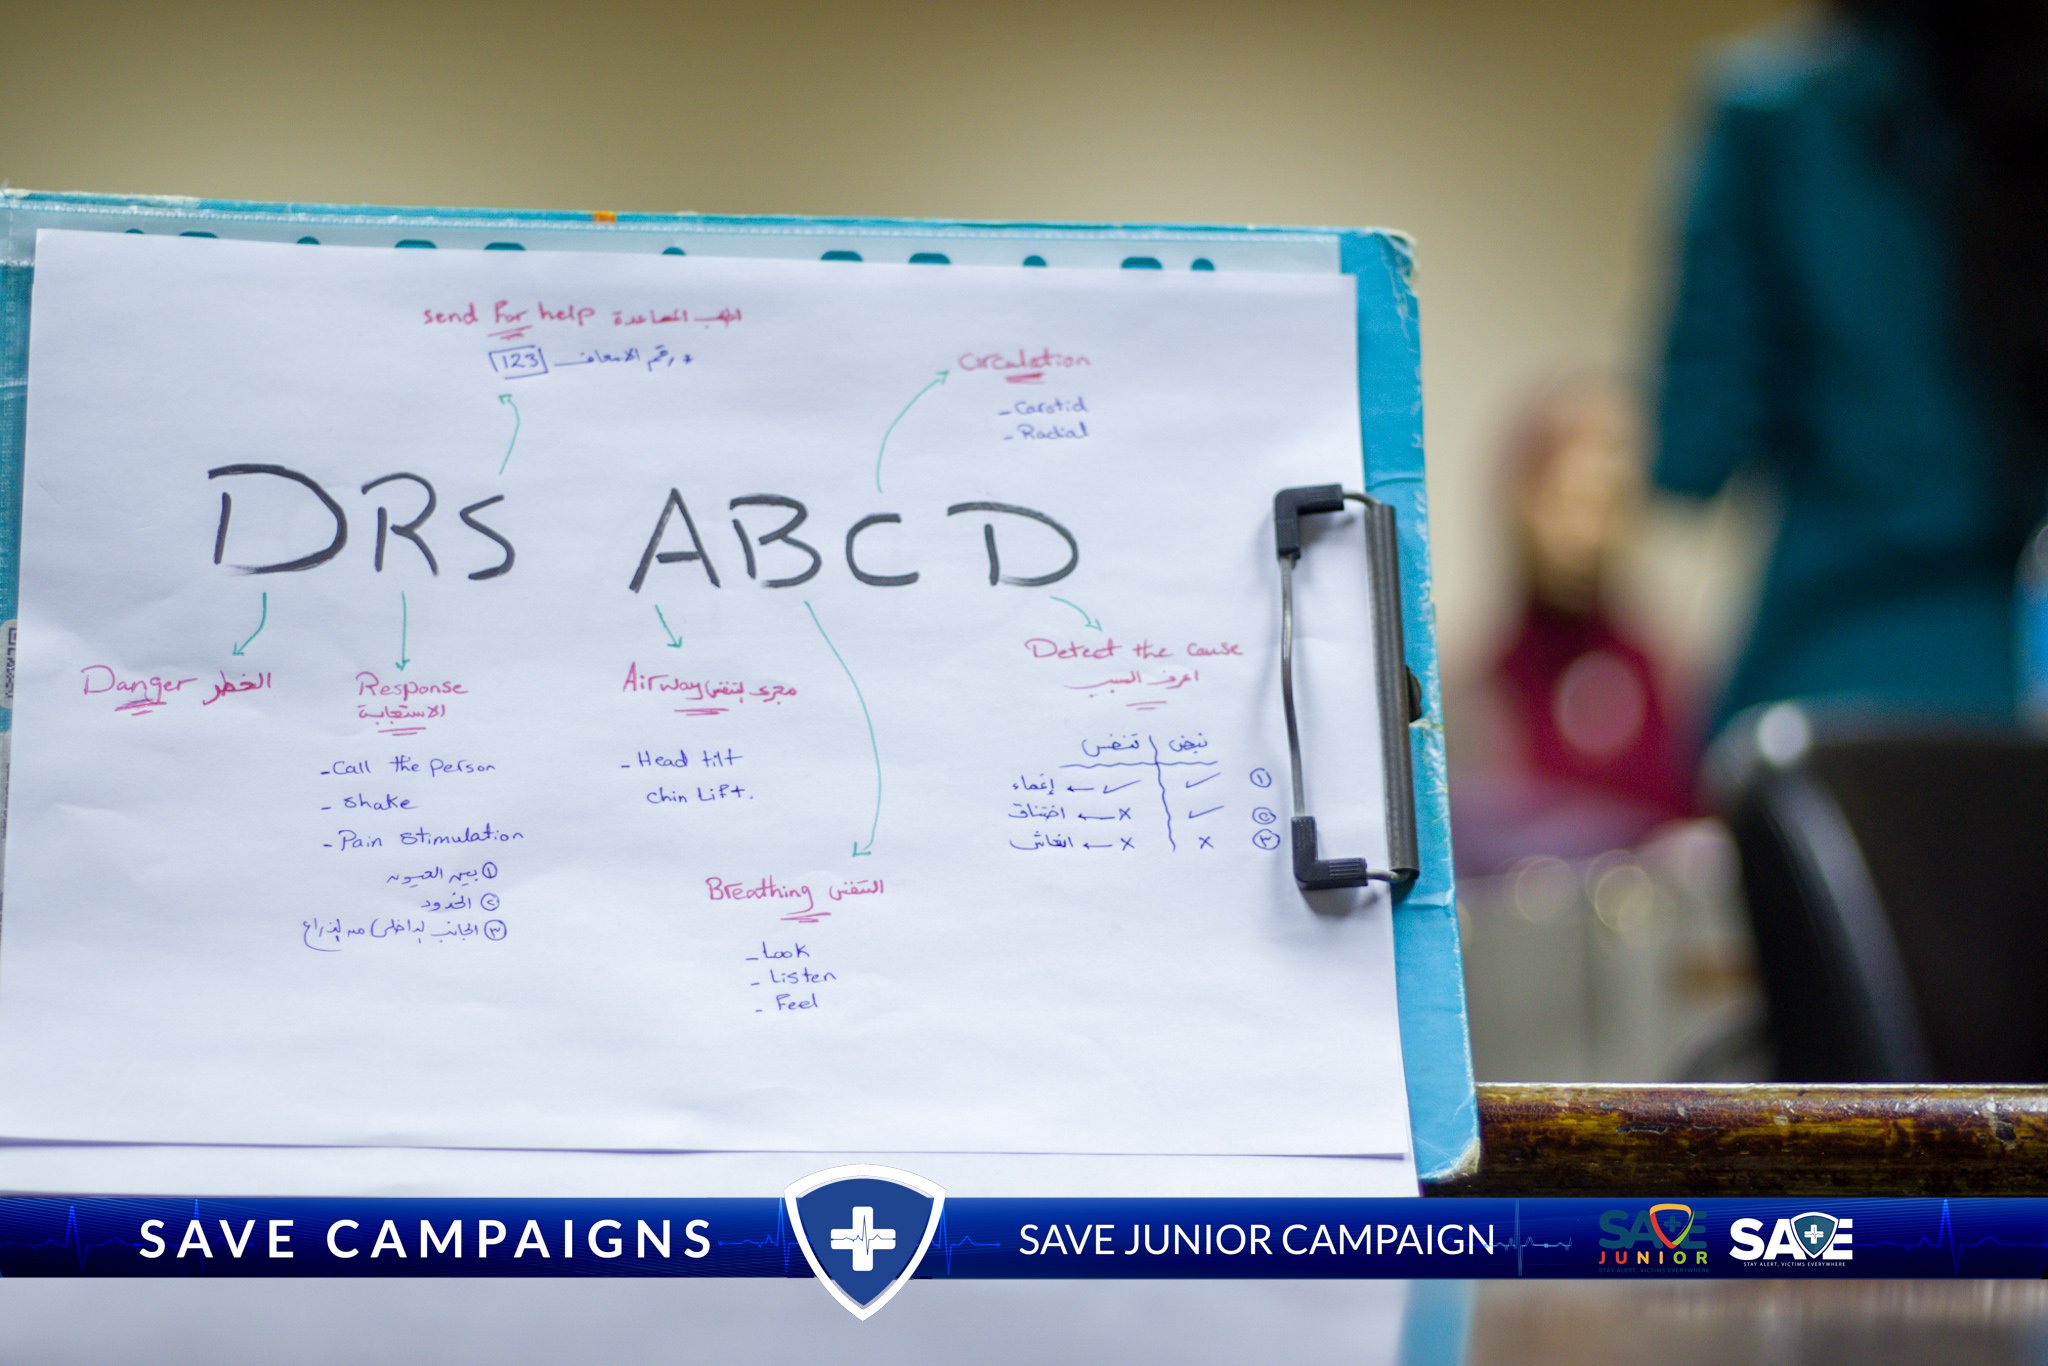 send for help اطلب المساعدة
* رقم الاسعاف 123
Circulation
- Carotid
- Radial
DRS ABCD
Danger الخطر
Response
الاستجابة
- Call the person
- Shake
- Pain stimulation
١ بين العيون
٢ الخدود
٣ الجانب الداخلي من الذراع
Airway مجرى التنفس
- Head tilt
chin Lift.
Breathing التنفس
- Look
- Listen
- Feel
Detect the cause
اعرف السبب
نبض تنفس
١ ✓ ✓ ← إغماء
٢ ✓ x ← اختناق
٣ x x ← انعاش
SAVE CAMPAIGNS
SAVE JUNIOR CAMPAIGN
SAVE
JUNIOR
STAY ALERT, VICTIMS EVERYWHERE
SAVE
STAY ALERT, VICTIMS EVERYWHERE